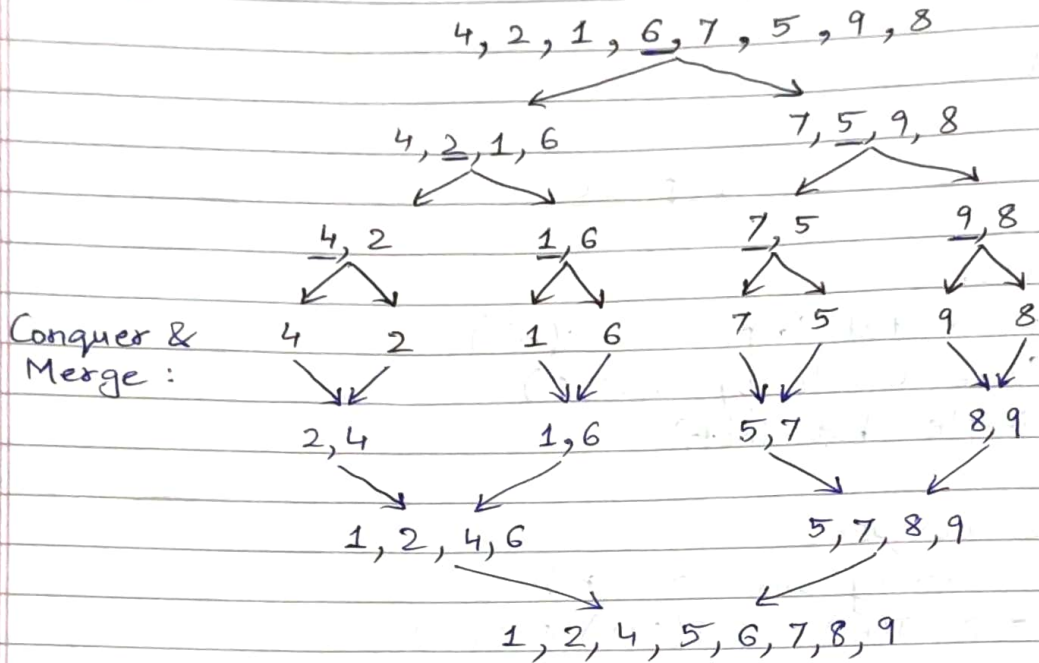 4, 2, 1, 6, 7, 5, 9, 8
4, 2, 1, 6 7, 5, 9, 8
4, 2 1, 6 7, 5 9, 8
Conquer & 4 2 1 6 7 5 9 8
Merge :
2, 4 1, 6 5, 7 8, 9
1, 2, 4, 6 5, 7, 8, 9
1, 2, 4, 5, 6, 7, 8, 9